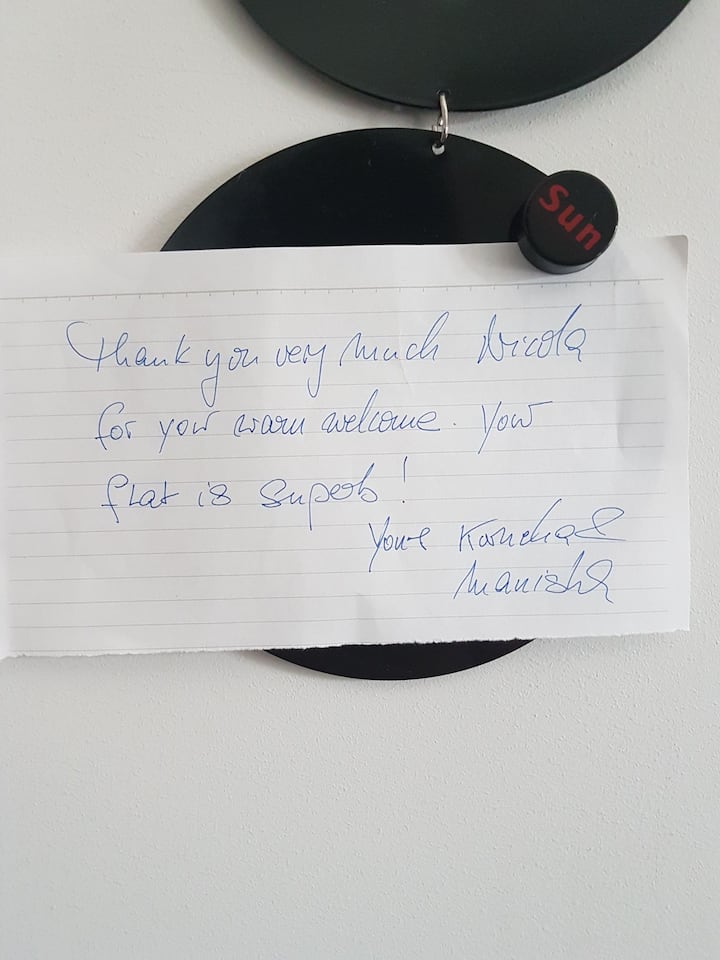 Sun
Thank you very much Nicola
for your warm welcome. Your
flat is superb!
Manisha